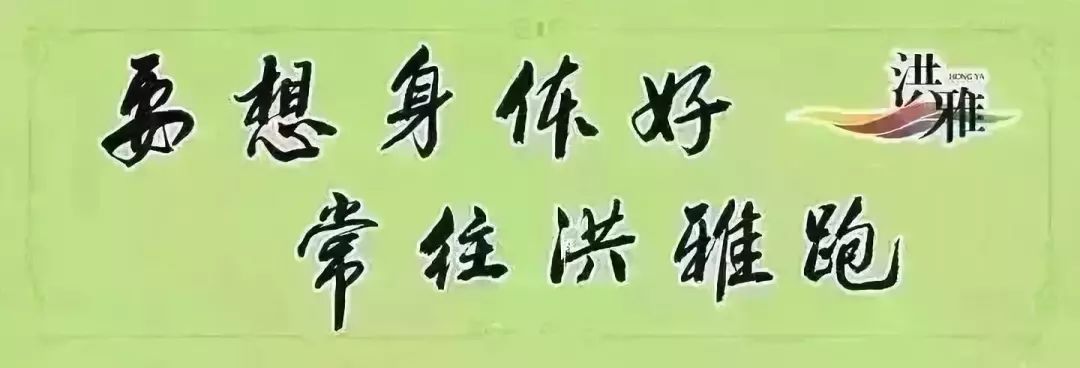 要想身体好
洪雅
HONG YA
常往洪雅跑